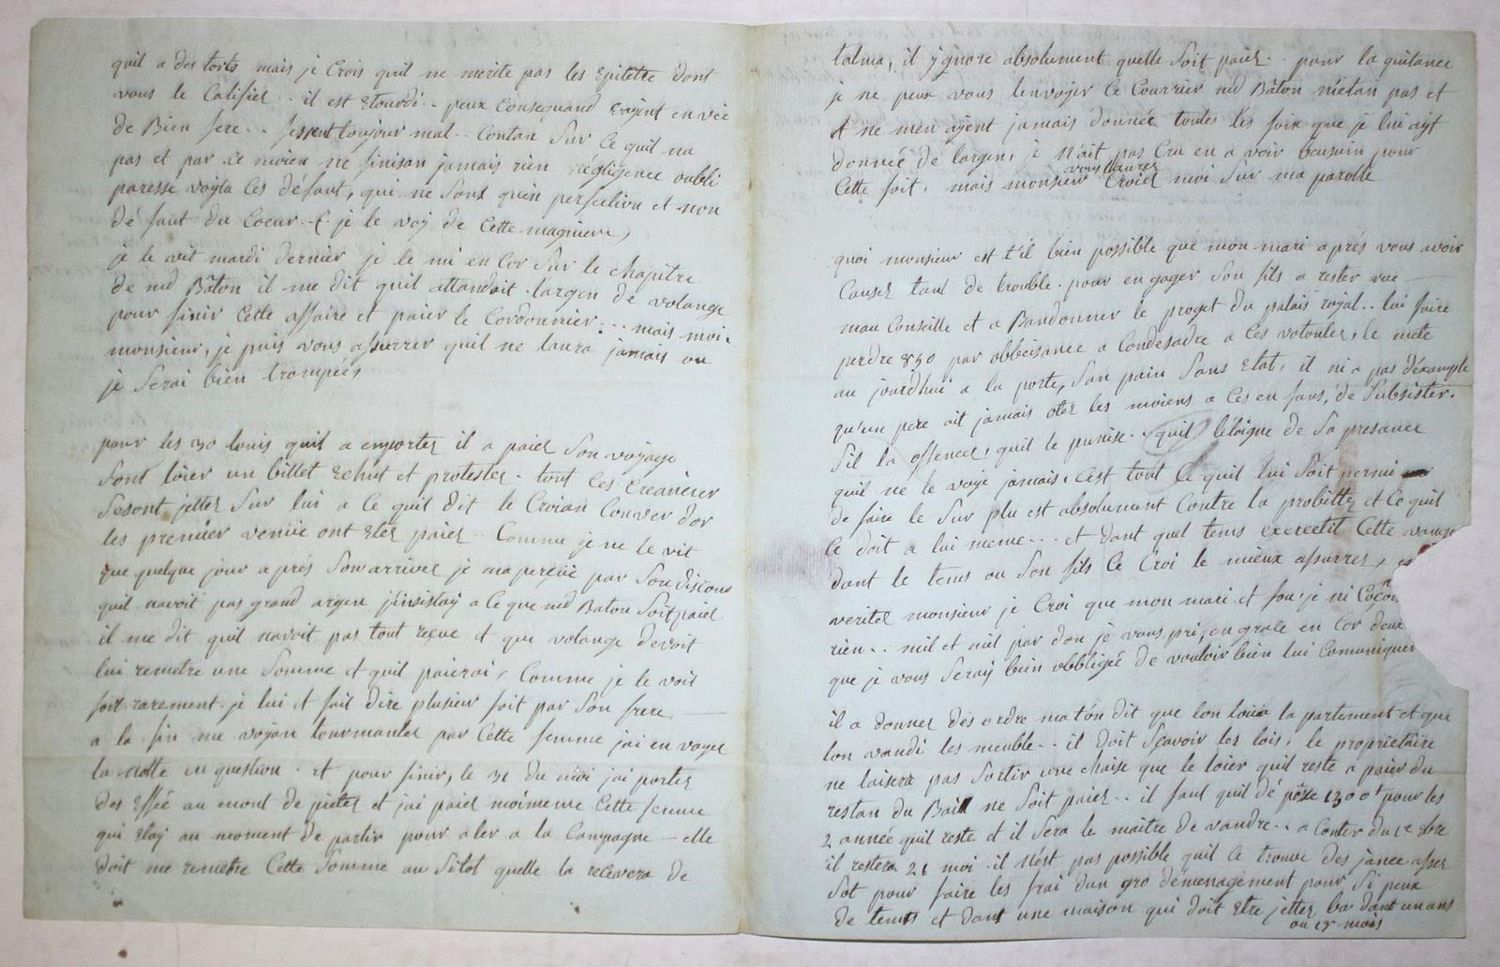 quil a des torts mais je Crois quil ne merite pas les Epitetre dont
vous le Califiel .. il est Etourdi .. peux Consequand ayent envie
de Bien fere .. toujour mal .. Contan Sur Ce quil na
pas et par Ce moien ne finisan jamais rien négligence oubli
paresse voyla les défaut, qui ne Sont quin perfection et non
dé faut du Coeur .. je le voy de Cette magniere,
je le vit mardi dernier je le mi en Cor Sur le chapitre
de md Bâton il me dit quil attandoit largen de volange
pour finir Cette affaire et paier le Cordonnier ... mais moi
monsieur, je puis vous assurrer quil ne laura jamais ou
je Serai bien trompée,
pour les 30 louis quil a emportez il a paiel Son voyage
Sont loier un billet Echut et protestez . tout Ces Creancier
Sesont jettez Sur lui a Ce quil dit le Croian Couver dor
les premier venue ont Etez paiel Comme je ne le vit
que quelque jour a prés Son arrivee je ma percue par Son discous
quil navoit pas grand argen jinsistay a Ce que md Baton Soit paiel
il me dit quil navoit pas tout reçue et que volange devoit
lui remetre une Somme et quil pairoai, Comme je le voit
fort rarement je lui et fait dire plusieur foit par Son frere
a la fin me voyan tourmantez par Cette femme jai en voyez
la notte en question . et pour finir, le 31 du moi jai portez
des Effée au mont de pietez et jai paiel moimeme Cette femme
qui Etay au moment de partir pour aler a la Campagne — elle
doit me remetre Cette Somme au Sitot quelle la recevera de
talma, il ygnore absolument quelle Soit paiel .. pour la quitance
je ne peux vous lenvoyer Ce Courrier md Bâton niétan pas et
et ne men ayent jamais donnée toutes les foix que je lui ayt
donnée de largen, je nait pas Cru en a voir beusoin pour
Cette foit, mais monsieur vous laurez Croiel moi Sur ma parolle
quoi monsieur est til bien possible que mon mari aprés vous avoir
Causez tant de trouble . pour en gager Son fils a rester vue
mau Conseille et a Bandonner le proget du palais royal .. lui faire
perdre 830 par obbeisance a Condesadre a Ces volontes, le mete
au jourdhui a la porte, San pain Sans Etat, il ni a pas déxample
qu'un pere ait jamais otez les moiens a Ces en fans, de Subsister.
Sil la offencez, quil le punise . quil leloigne de Sa presance
quil ne le voye jamais, Cest tout Ce quil lui Soit permi
de faire le Sur plu est absolument Contre la probittez et Ce quil
Ce doit a lui meme ... et dant quel tems Cette
dant le tems ou Son fils Ce Croi le mieux assurrez,
veritel monsieur je Croi que mon mari et fou je ni
rien .. mil et mil par don je vous pri, en grace en Cor
que je vous Seray bien obbligée de vouloir bien lui Comuniquer
il a donnez des ordre ma tón dit que lon loua la partement et que
lon vandi les meuble .. il doit Scavoir les lois, le proprietaire
ne laisera pas Sortir une chaise que le loier quil reste a paier du
restan du Bail ne Soit paiel .. il faut quil dé pose 1300# pour les
2 année quil reste et il Sera le maitre de vandre .. a Conter du bre
il restera 21 moi il nést pas possible quil Ce trouve des jance assez
Sot pour faire les frai dun gro démenagement pour Si peux
de tems et dant une maison qui doit Etre jettez ba dant un ans
ou 18 mois